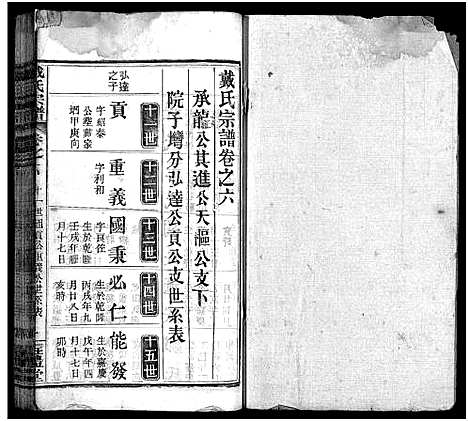 戴氏宗譜卷之六
承龍公其進公天漚公支下
院子塆分弘達公貢公支世系表
十一世
十二世
十三世
十四世
十五世
弘達之子
貢
字紹泰
公塟戴家
塆甲庚向
重義
字利和
國秉
字良佐
生於乾隆
壬戌年
月十七日
必仁
生於乾隆
丙戌年九
月廿八日
亥時
能發
生於嘉慶
戊午年四
月十七日
卯時
戴氏宗譜
卷之六